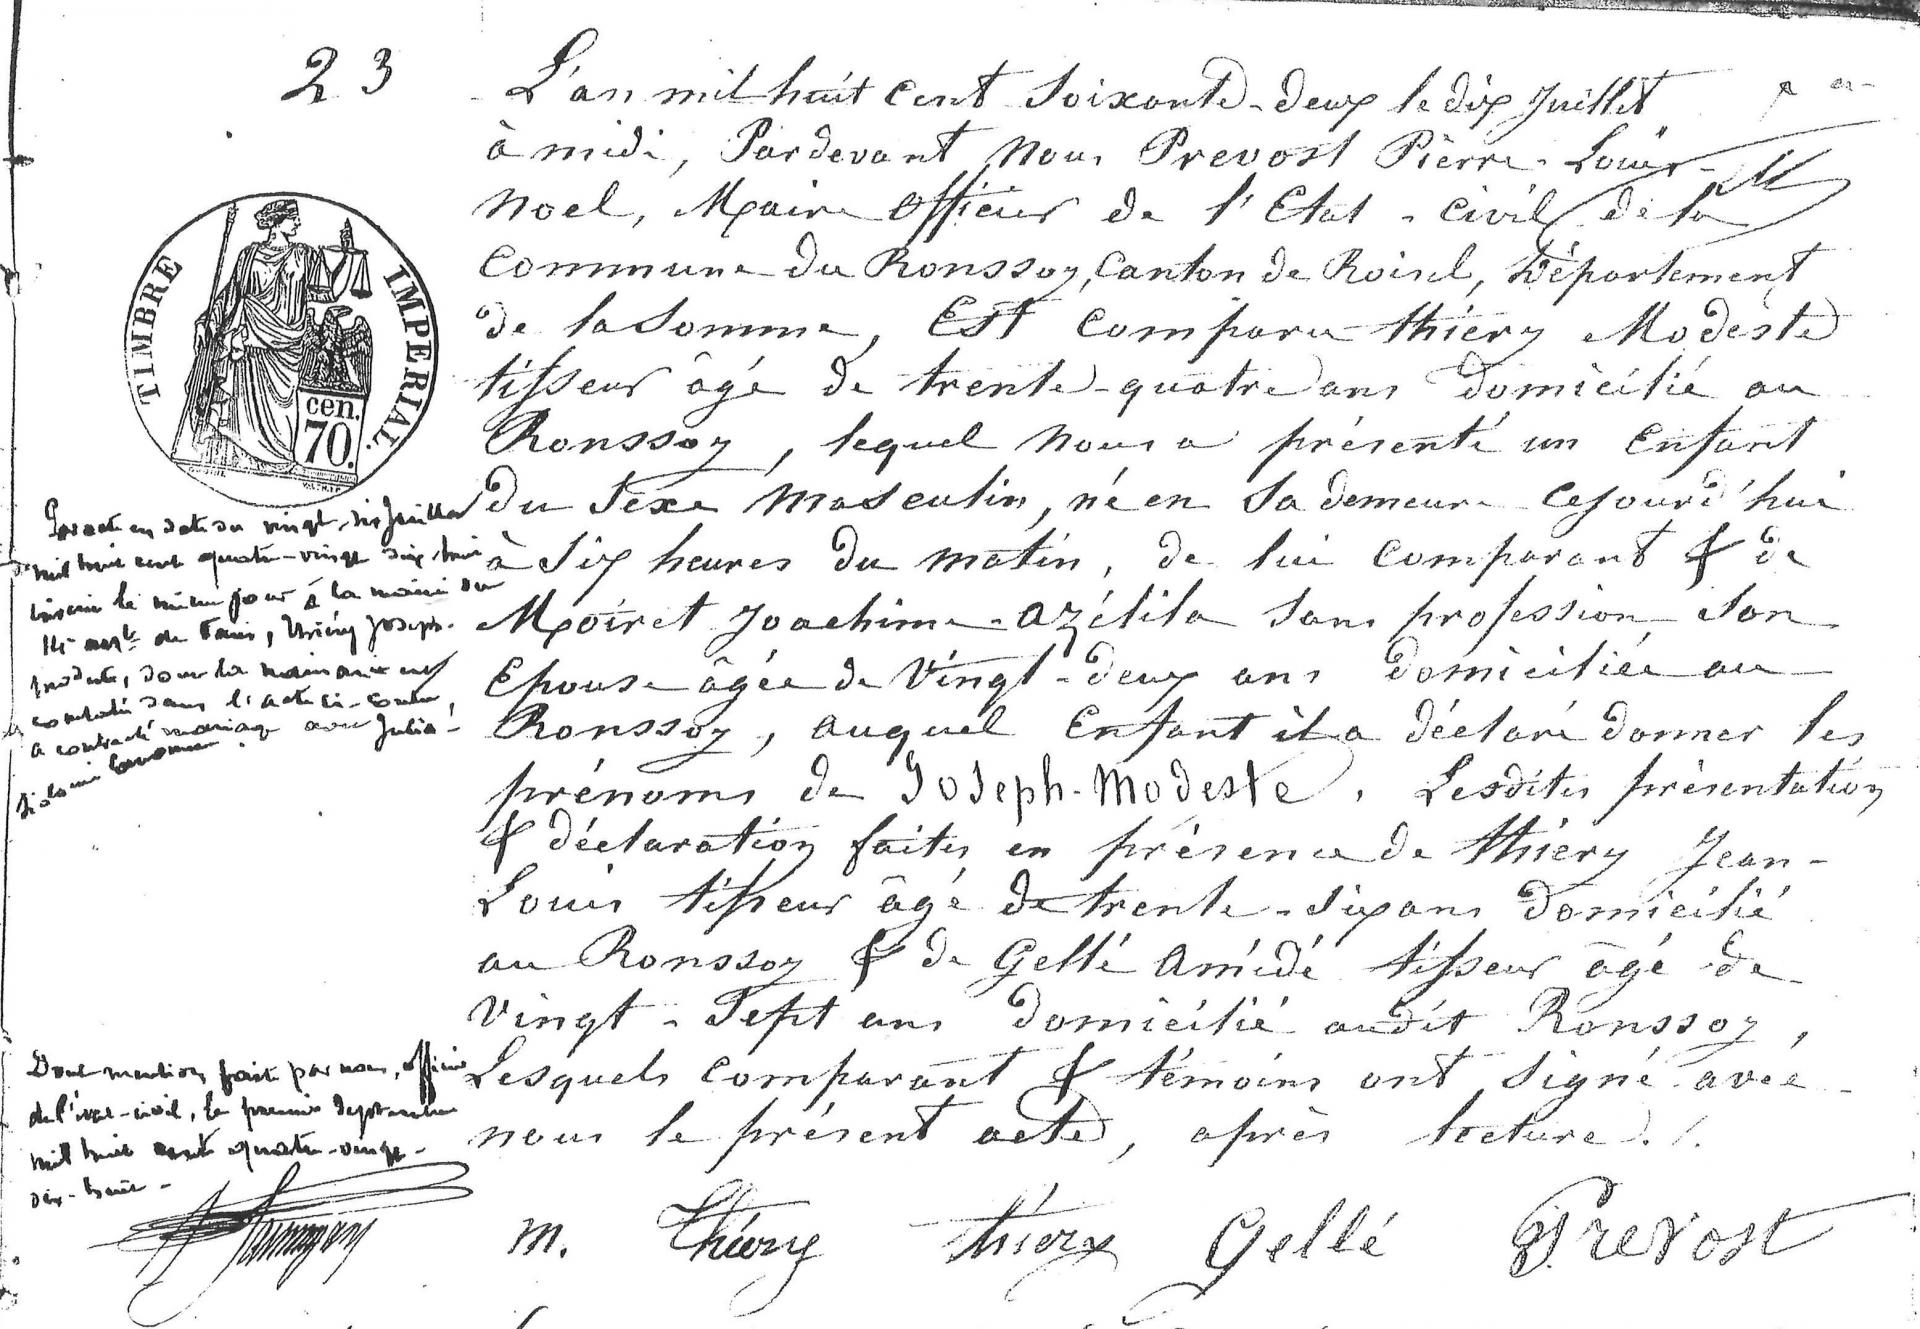 23
L'an mil huit cent soixante-deux le dix Juillet
à midi, Pardevant Nous Prevost Pierre-Louis-
Noel, Maire Officier de l'Etat-civil de la
Commune du Ronssoy, Canton de Roisel, Département
de la Somme, Est comparu thiéry Modeste
tisseur âgé de trente-quatre ans domicilié au
Ronssoy, lequel Nous a présenté un Enfant
du Sexe Masculin, né en sa demeure cejourd'hui
à Six heures du matin, de lui comparant & de
Moiret Joachime-Azélila sans profession, son
Epouse âgée de Vingt-deux ans domiciliée au
Ronssoy, auquel Enfant il a déclaré donner les
prénoms de Joseph-Modeste. Lesdites présentation
& déclaration faites en présence de thiéry Jean-
Louis tisseur âgé de trente-six ans domicilié
au Ronssoy & de Gellé Amédé tisseur âgé de
Vingt-Sept ans domicilié audit Ronssoy,
Lesquels comparant & témoins ont signé avec
nous le présent acte, après lecture./.
M. Thiéry thiéry Gellé Prevost
TIMBRE IMPERIAL.
cen.
70.
Par acte en date du vingt-six Juillet
mil huit cent quatre-vingt dix-huit
inscrit le même jour à la mairie du
arrt de Paris, Thiéry Joseph-
Modeste, dont la naissance est
constatée dans l'acte ci-contre,
a contracté mariage avec Julia-
Dont mention faite par nous, officier
de l'état-civil, le premier Septembre
mil huit cent quatre-vingt-
dix-huit-